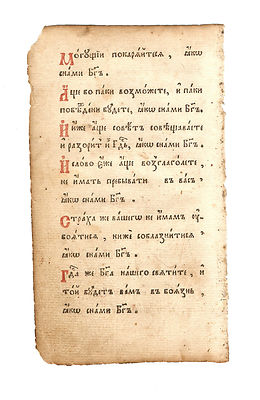 Могꙋщїи покарѧ́йтесѧ , ꙗ҆́кѡ
съна́ми Бг҃ъ .
А҆́ще бо па́ки возмо́жете , и҆ па́ки
побѣжде́ни бꙋ́дете , ꙗ҆́кѡ съна́ми Бг҃ъ .
И҆ и҆́же а҆́ще совѣ́тъ совѣщава́ете
и҆ разори́тъ Гд҇ь , ꙗ҆́кѡ съна́ми Бг҃ъ .
И҆ сло́во є҆́же а҆́ще возглаго́лете ,
не и҆́мать пребыва́ти въ ва́съ ,
ꙗ҆́кѡ съна́ми Бг҃ъ .
Стра́ха же ва́шегѡ не и҆́мамъ ᲂу҆-
боѧ́тисѧ , ниже́ соблазни́тисѧ
ꙗ҆́кѡ съна́ми Бг҃ъ .
Гд҇а же Бг҃а на́шего свѧти́те , и҆
то́й бꙋ́детъ ва́мъ въ боѧ́знь ,
ꙗ҆́кѡ съна́ми Бг҃ъ .